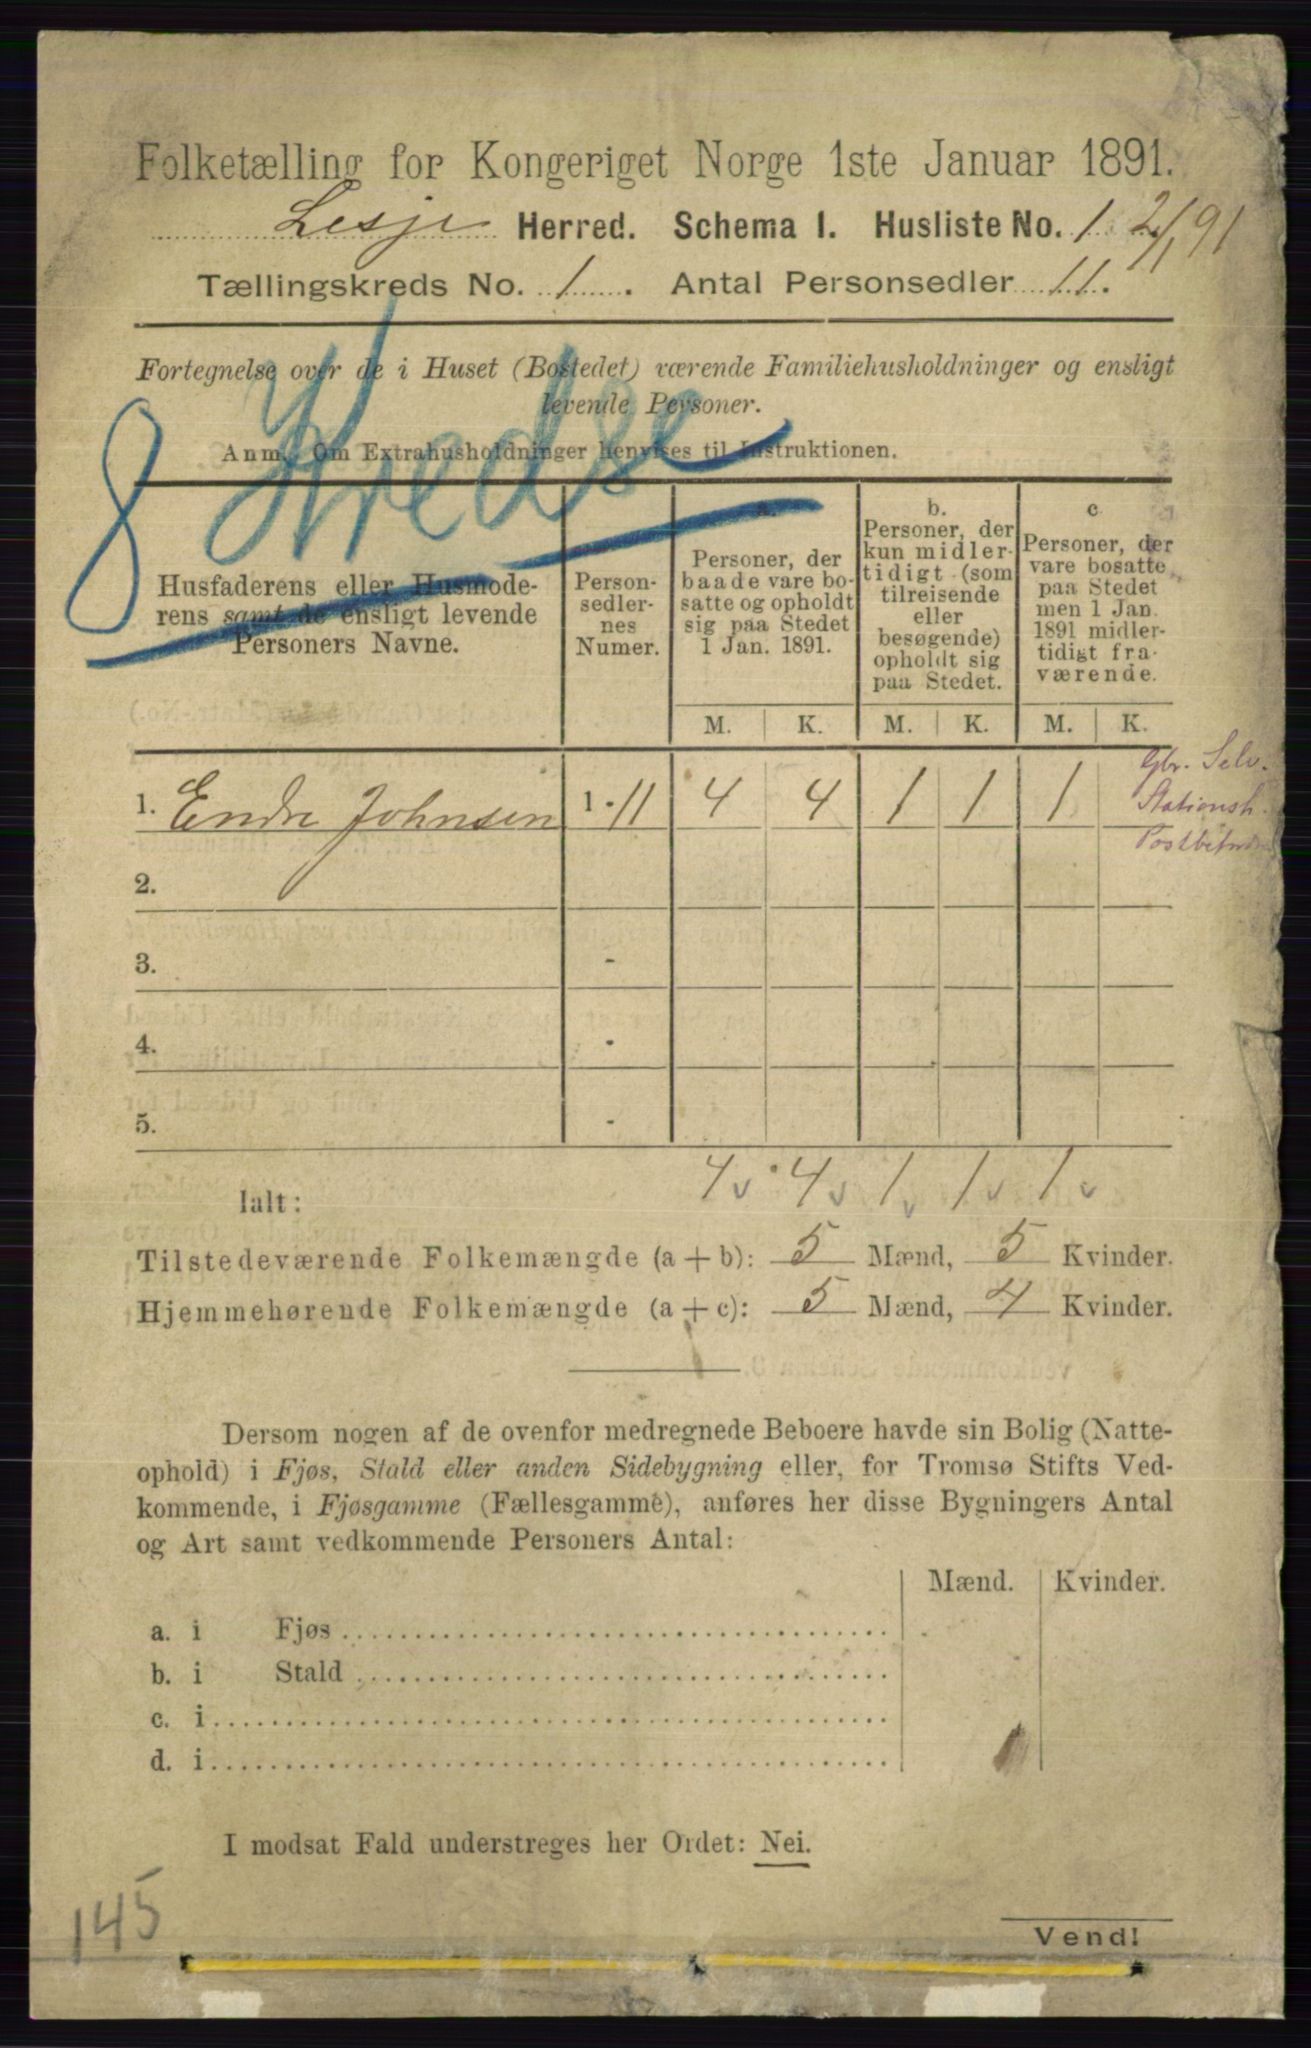 Folketælling for Kongeriget Norge 1ste Januar 1891.
Lesje Herred. Schema I. Husliste No. 1 2/1 91
Tællingskreds No. 1. Antal Personsedler 11.
Fortegnelse over de i Huset (Bostedet) værende Familiehusholdninger og ensligt
levende Personer.
Anm. Om Extrahusholdninger henvises til Instruktionen.
8 Kredse
Husfaderens eller Husmode-
rens samt de ensligt levende
Personers Navne.
Person-
sedler-
nes
Numer.
a.
Personer, der
baade vare bo-
satte og opholdt
sig paa Stedet
1 Jan. 1891.
b.
Personer, der
kun midler-
tidigt (som
tilreisende
eller
besøgende)
opholdt sig
paa Stedet.
c
Personer, der
vare bosatte
paa Stedet
men 1 Jan.
1891 midler-
tidigt fra-
værende.
M. K. M. K. M. K.
1. Endre Johnsen 1-11 4 4 1 1 1
Gbr. Selv.
Stationsh.
2.
3. -
4. -
5. -
Ialt: 4 4 1 1 1
Tilstedeværende Folkemængde (a + b): 5 Mænd, 5 Kvinder.
Hjemmehørende Folkemængde (a + c): 5 Mænd, 4 Kvinder.
Dersom nogen af de ovenfor medregnede Beboere havde sin Bolig (Natte-
ophold) i Fjøs, Stald eller anden Sidebygning eller, for Tromsø Stifts Ved-
kommende, i Fjøsgamme (Fællesgamme), anføres her disse Bygningers Antal
og Art samt vedkommende Personers Antal:
Mænd. Kvinder.
a. i Fjøs
b. i Stald
c. i
d. i
I modsat Fald understreges her Ordet: Nei.
145
Vend!